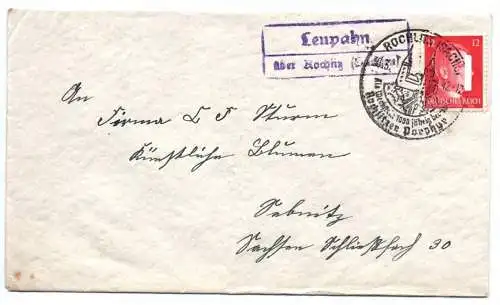 Leupahn
über Rochlitz
ROCHLITZ (SACHS)
12
DEUTSCHES REICH
1000 jährig
Rochlitzer Porphyr
An
Firma C F Sturm
Künstliche Blumen
Sebnitz
Sachsen Schließfach 30